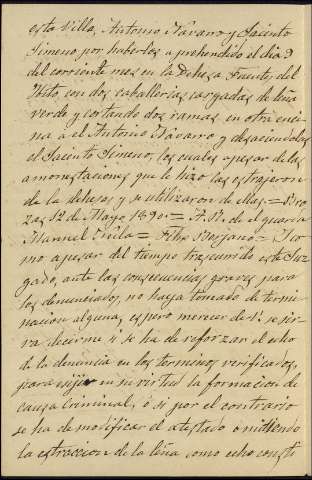 esta Villa, Antonio Navarro y Jacinto
Jimeno por haberlos aprehendido el dia 9
del corriente mes en la Dehesa Fuente del
Foito, con dos caballerias cargadas de leña
verde y cortando dos ramas en otra enci-
na a el Antonio Navarro y
el Jacinto Jimeno, los cuales apesar de las
amonestaciones que le hizo las estrajeron
de la dehesa y se utilizaron de ellas.=
12 de Mayo 1890.= A. R. de el guarda
Manuel = Felix Borjano = I co-
mo apesar del tiempo trascurrido este Juz-
gado, ante las consecuencias graves para
los denunciados, no haya tomado determi-
nacion alguna, espero merecer de V. se sir-
va decirme si se ha de reforzar el echo
de la denuncia en los terminos verificados,
para exijir en su virtud la formacion de
causa criminal, ó si por el contrario
se ha de modificar el atestado omitiendo
la estraccion de la leña como echo consti